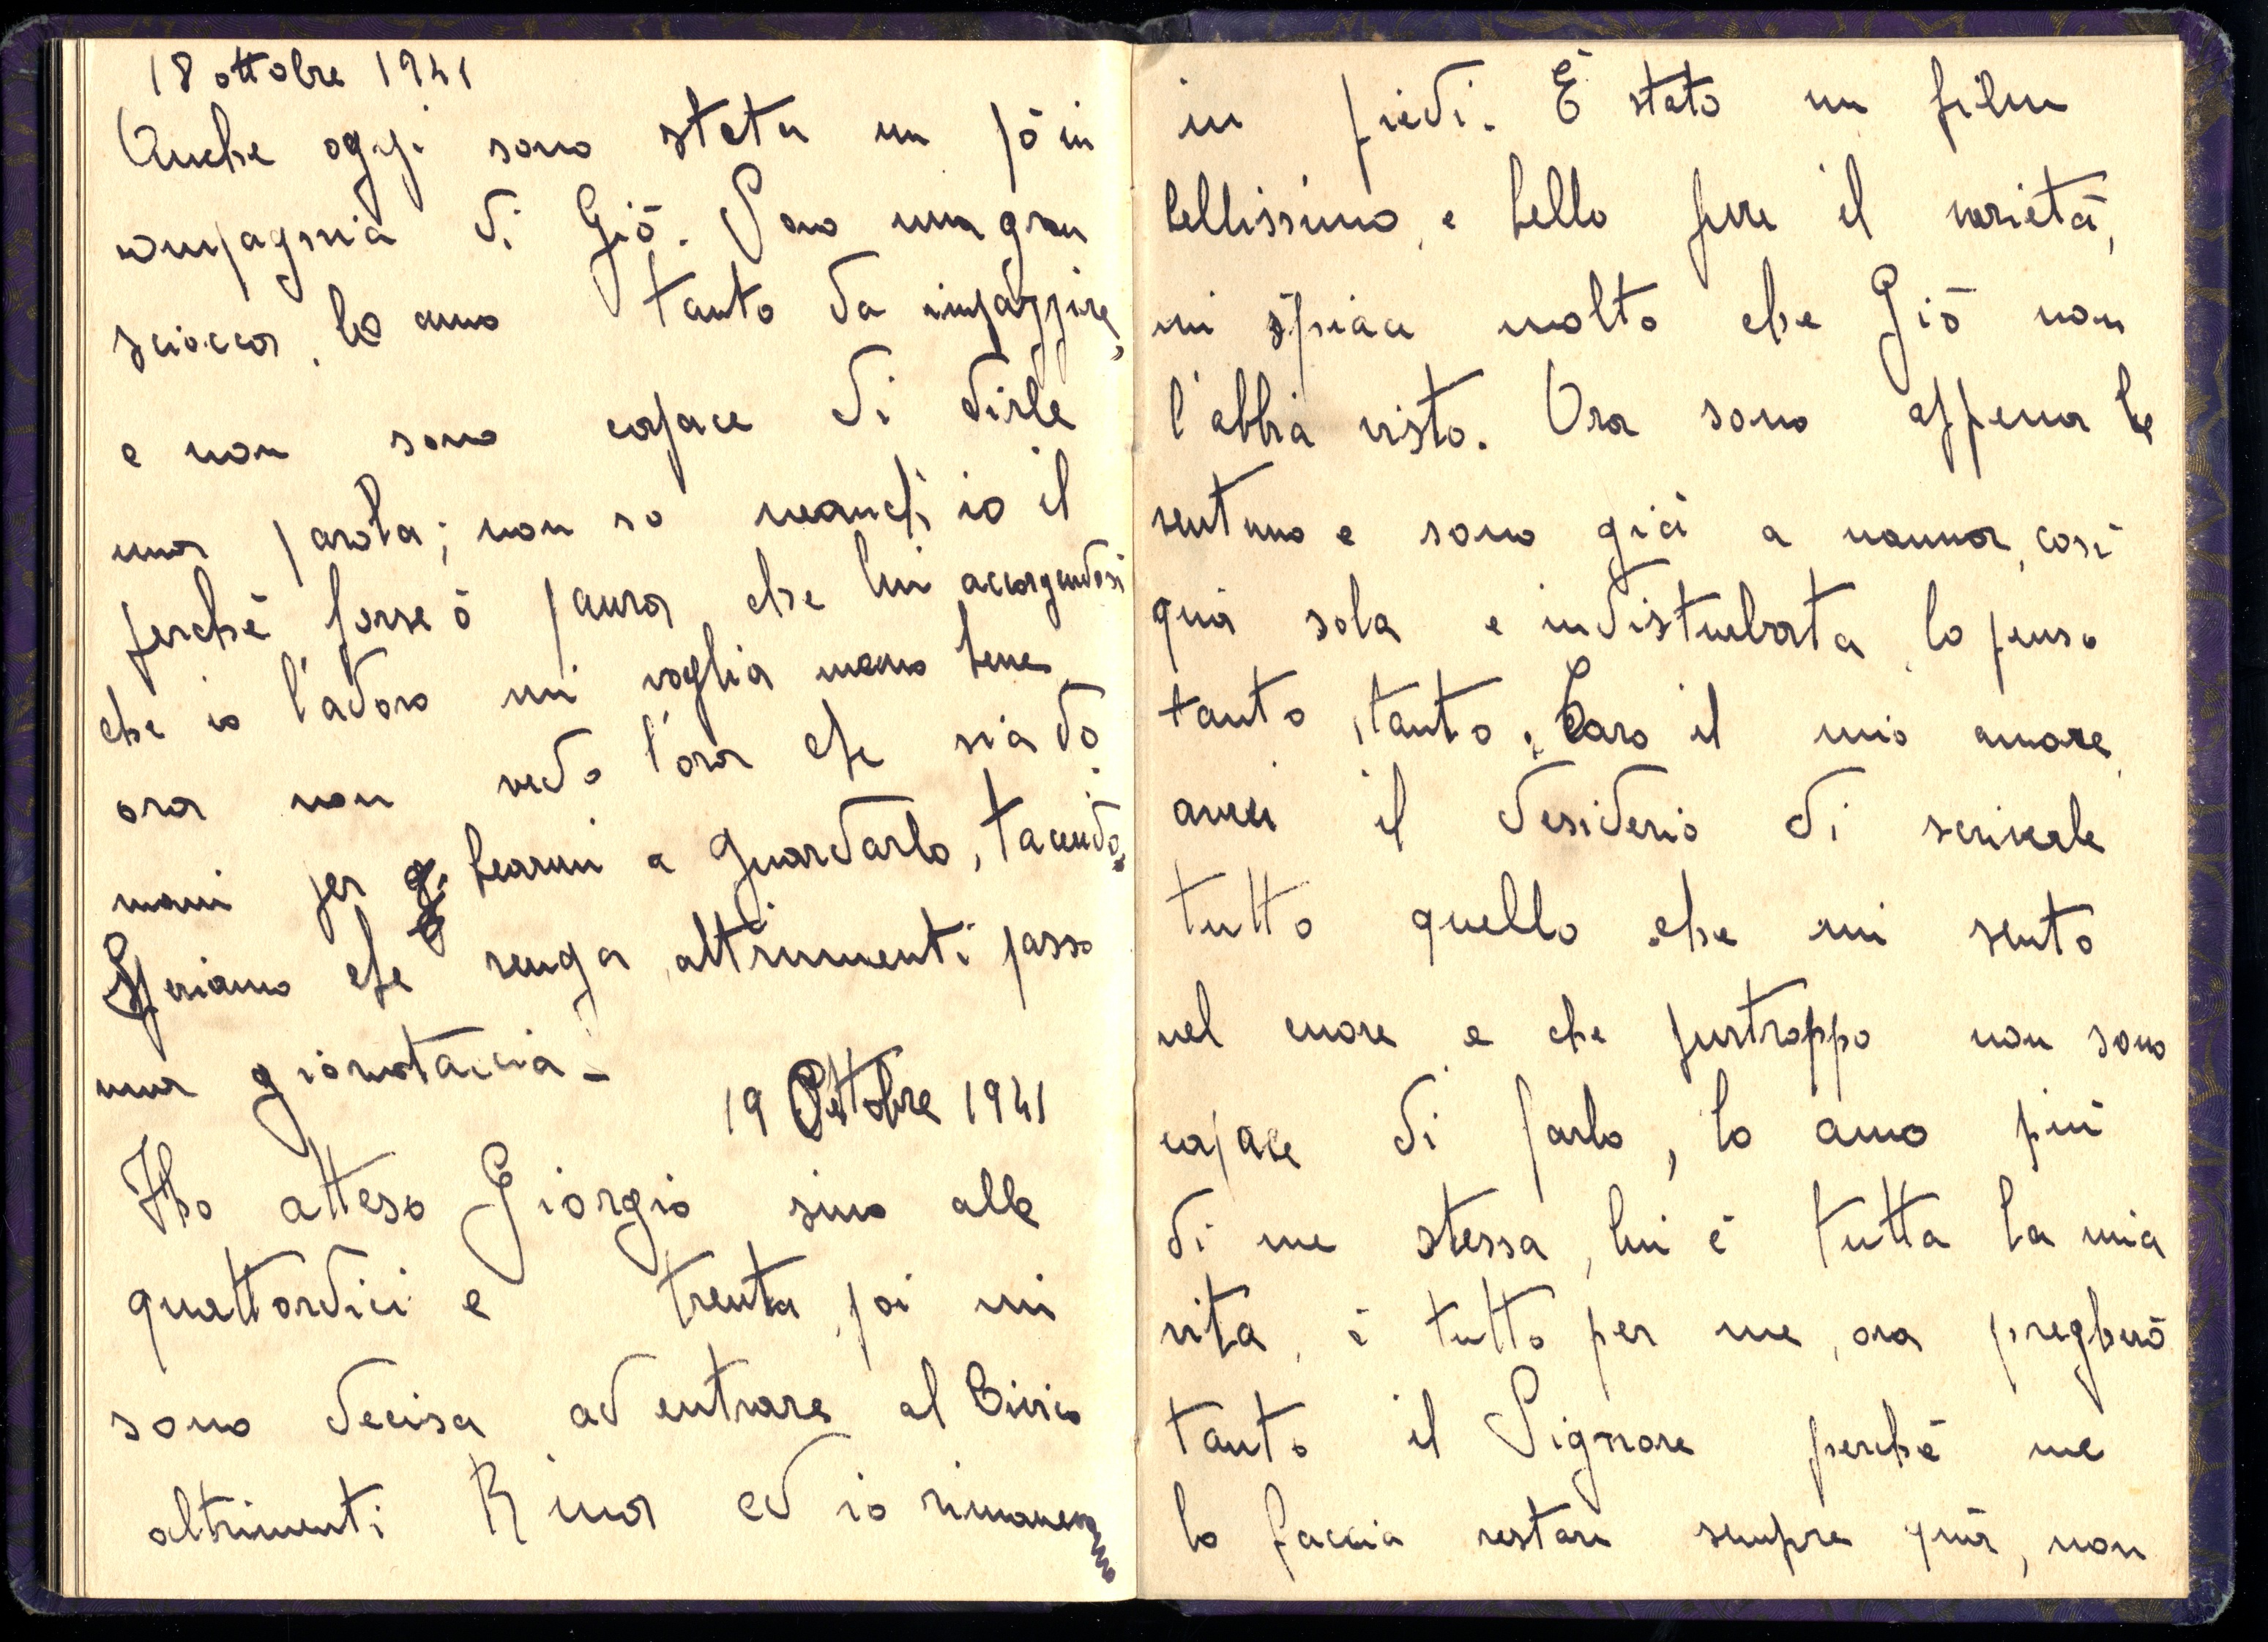 18 ottobre 1941
Anche oggi sono stata un pò in
compagnia di Giò. Sono una gran
sciocca, lo amo tanto da impazzire,
e non sono capace di dirle
una parola; non so neanch'io il
perchè forse ò paura che lui accorgendosi
che io l'adoro mi voglia meno bene,
ora non vedo l'ora che sia do
mani per bearmi a guardarlo, tacendo.
Speriamo che venga altrimenti passo
una giornataccia -
19 Ottobre 1941
Ho atteso Giorgio sino alle
quattordici e trenta, poi mi
sono decisa ad entrare al
altrimenti Rina ed io rimanevamo
in piedi. È stato un film
bellissimo, e bello pure il varietà,
mi spiace molto che Giò non
l'abbia visto. Ora sono appena le
ventuno e sono già a nanna, così
quà sola e indisturbata, lo penso
tanto, tanto. Caro il mio amore,
avrei il desiderio di scriverle
tutto quello che mi sento
nel cuore e che purtroppo non sono
capace di farlo, lo amo più
di me stessa, lui è tutta la mia
vita, è tutto per me, ora pregherò
tanto il Signore perchè me
lo faccia restare sempre quà, non